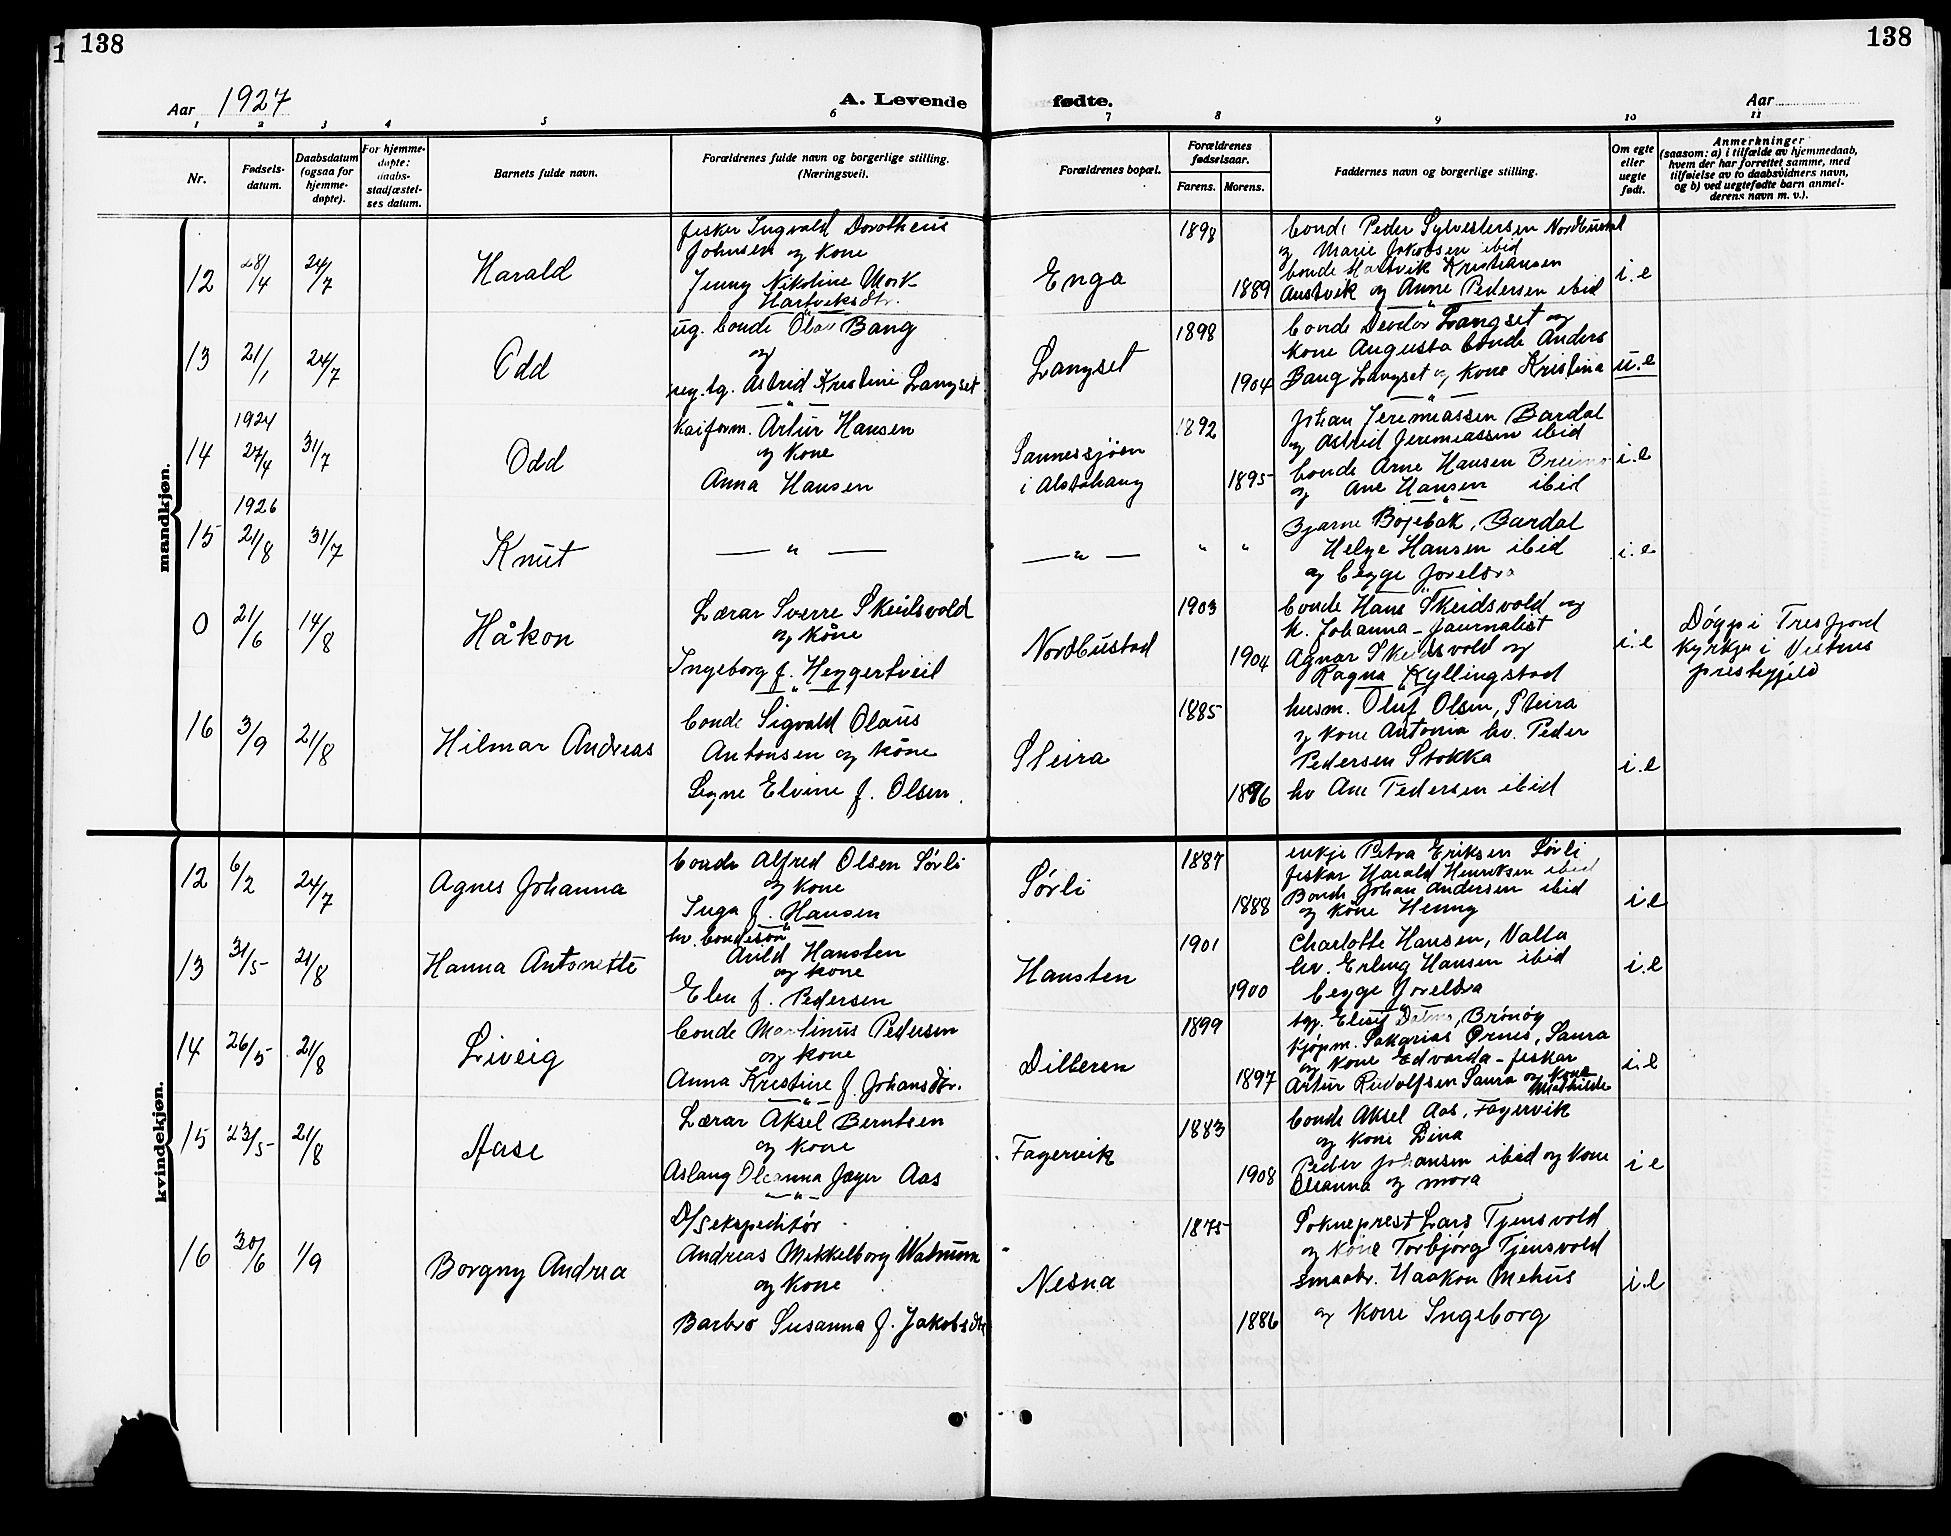 138
138
Aar 1927
A. Levende fødte.
Aar
1 2 3 4 5 6 7 8 9 10 11
Nr.
Fødsels-
datum.
Daabsdatum
(ogsaa for
hjemme-
døpte).
For hjemme-
døpte:
daabs-
stadfæstel-
ses datum.
Barnets fulde navn.
Forældrenes fulde navn og borgerlige stilling.
(Næringsvei).
Forældrenes bopæl.
Forældrenes
fødselsaar.
Farens. Morens.
Faddernes navn og borgerlige stilling.
Om egte
eller
uegte
født.
Anmerkninger
(saasom: a) i tilfælde av hjemmedaab,
hvem der har forrettet samme, med
tilføielse av to daabsvidners navn,
og b) ved uegtefødte barn anmel-
derens navn m. v.).
mandkjøn.
12 28/4 24/7 Harald
fisker Ingvald Dorotheus
Johnsen og kone
Jenny Nikoline Mork
Hartviksdtr.
Enga
1898
1889
bonde Peder Sylvestersen Nordbustad
og Marie Jakobsen ibid
bonde Hartvik Kristiansen
Austvik og Anne Pedersen ibid
i.e
13 21/1 24/7 Odd
ug. bonde Olav Bang
og
Astrid Kristine Langset
Langset
1898
1904
bonde Langset og
kone Augusta bonde Anders
Bang Langset og kone Kristina
u.e
14 1924 27/4 31/7 Odd
kaiform. Artur Hansen
og kone
Anna Hansen
Sannessjøen
i Alstahaug
1892
1895
Johan Jeremiassen Bardal
og Astrid Jeremiassen ibid
bonde Arne Hansen
og Ane Hansen ibid
i.e
15 1926 21/8 31/7 Knut
— " —
— " —
" "
Bjarne Bojebak, Bardal
Helge Hansen ibid
og begge foreldra
i.e
0 21/6 14/8 Håkon
Lærar Sverre Skeidsvold
og kone
Ingeborg f. Heggertveit
Nordbustad
1903
1904
bonde Hans Skeidsvold og
k. Johanna - Journalist
Agnar Skeidsvold og
Ragna Kyllingstad
i.e
Døypt i Tresfjord
kyrkje i Vestnes
prestegjeld
16 3/9 21/8 Hilmar Andreas
bonde Sigvald Olaus
Antonsen og kone
Signe Elvine f. Olsen
Steira
1885
1896
husm. Oluf Olsen, Steira
og kone Antonia hv. Peder
Pedersen Stokka
hv Ane Pedersen ibid
i.e
kvindekjøn.
12 6/2 24/7 Agnes Johanna
bonde Alfred Olsen Sørli
og kone
Inga f. Hansen
Sørli
1887
1888
enkje Petra Eriksen Sørli
fiskar Harald Henriksen ibid
Bonde Johan Andersen ibid
og kone Henny
i.e
13 31/5 21/8 Hanna Antonette
hv. bondeson
Arild Hansten
og kone
Elen f. Pedersen
Hansten
1901
1900
Charlotte Hansen, Valla
hv. Erling Hansen ibid
begge foreldra
i.e
14 26/5 21/8 Liveig
bonde Martinus Pedersen
og kone
Anna Kristine f. Johansdtr.
Dilteren
1899
1897
Brónøy
kjøpm. Sakarias Ørnes, Saura
og kone Edvarda - fiskar
Artur Rudolfsen Saura og kone
Mathilde
i.e
15 23/5 21/8 Aase
Lærar Aksel Berntsen
og kone
Aslaug Oleanna Jæger Aas
Fagervik
1883
1908
bonde Aksel Aas, Fagervik
og kone Lina
Peder Johansen ibid og kone
Oleanna og mora
i e
16 30/6 1/9 Borgny Andrea
D/S ekspeditør
Andreas Mekkelborg Watnum
og kone
Barbro Susanna f. Jakobsdtr
Nesna
1875
1886
Sokneprest Lars Tjensvold
og kone Torbjørg Tjensvold
smaabr. Haakon Mehus
og kone Ingeborg
i.e